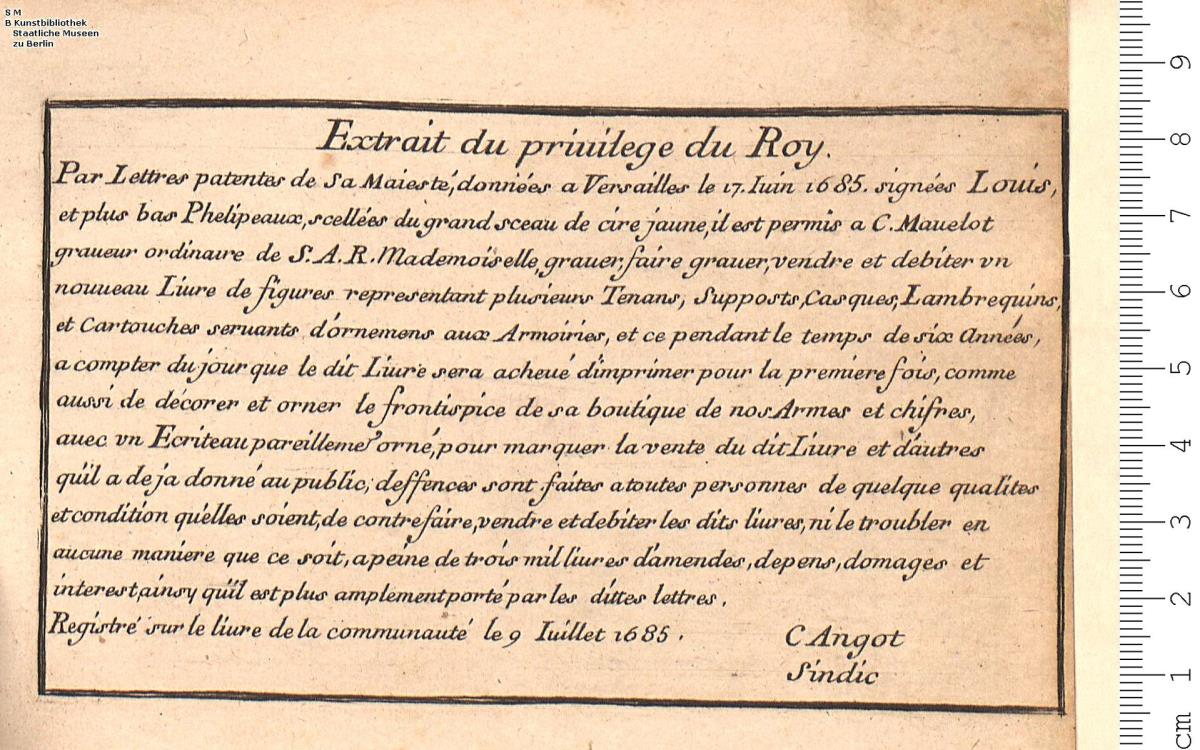 S M
B Kunstbibliothek
Staatliche Museen
zu Berlin
Extrait du priuilege du Roy.
Par Lettres patentes de Sa Maiesté, données a Versailles le 17. Iuin 1685. signées Louis,
et plus bas Phelipeaux, scellées du grand sceau de cire jaune, il est permis a C. Mauelot
graueur ordinaire de S. A. R. Mademoiselle, grauer, faire grauer, vendre et debiter vn
nouueau Liure de figures representant plusieurs Tenans, Supposts, Casques, Lambrequins,
et Cartouches seruants d'ornemens aux Armoiries, et ce pendant le temps de six Années,
a compter du jour que le dit Liure sera acheué d'imprimer pour la premiere fois, comme
aussi de décorer et orner le frontispice de sa boutique de nos Armes et chifres,
auec vn Ecriteau pareilleme͂t orné, pour marquer la vente du dit Liure et d'autres
qu'il a deja donné au public, deffences sont faites a toutes personnes de quelque qualites
et condition qu'elles soient, de contrefaire, vendre et debiter les dits liures, ni le troubler en
aucune maniere que ce soit, a peine de trois mil liures d'amendes, depens, domages et
interest, ainsy qu'il est plus amplement porté par les dittes lettres.
Registré sur le liure de la communauté le 9 Iuillet 1685.
C Angot
Sindic
9
8
7
6
5
4
3
2
1
cm